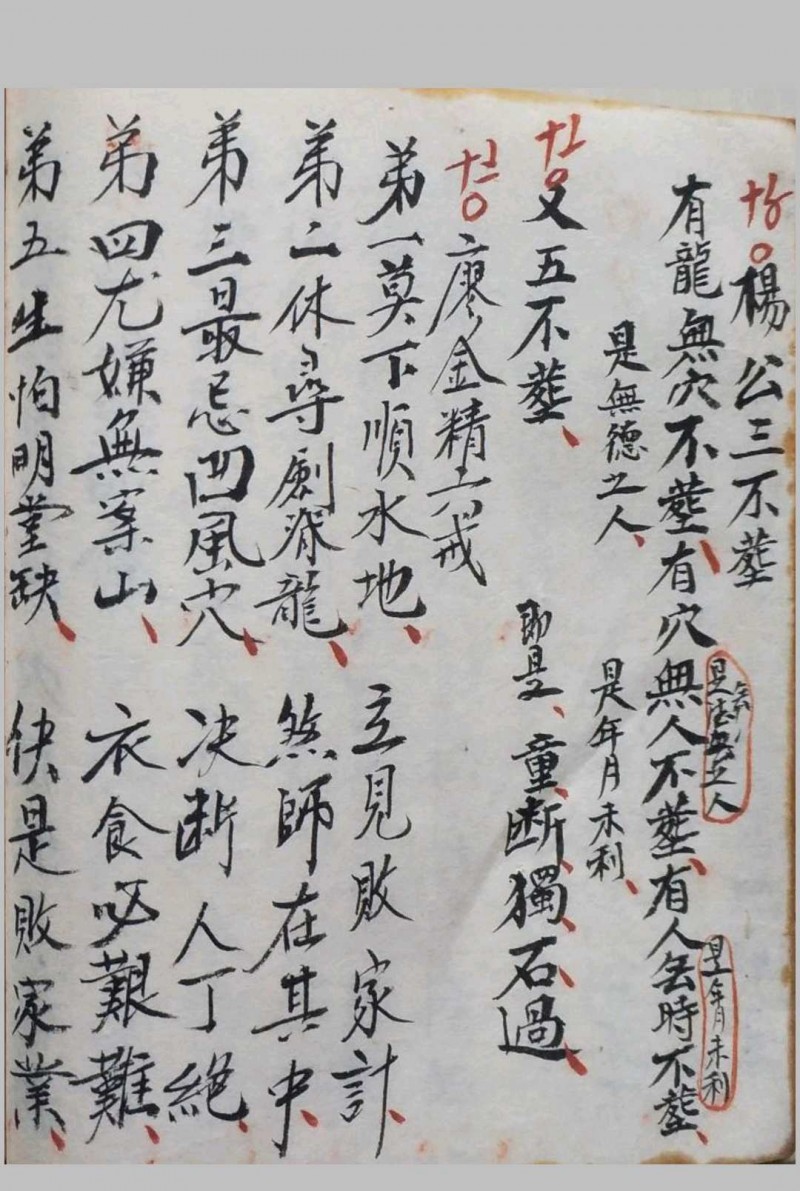 楊公三不塟
有龍無穴不塟、有穴無人不塟、有人无時不塟、
是無德之人
是年月未利
是無德之人、
是年月未利、
又五不塟、
即是、童、断、獨、石、過、
廖金精六戒
弟一莫下順水地、
立見敗家計、
弟二休尋劍脊龍、
煞師在其中、
弟三最忌凹風穴、
决断人丁絕、
弟四尤嫌無案山、
衣食必艱難、
弟五生怕明堂缺、
快是敗家業、